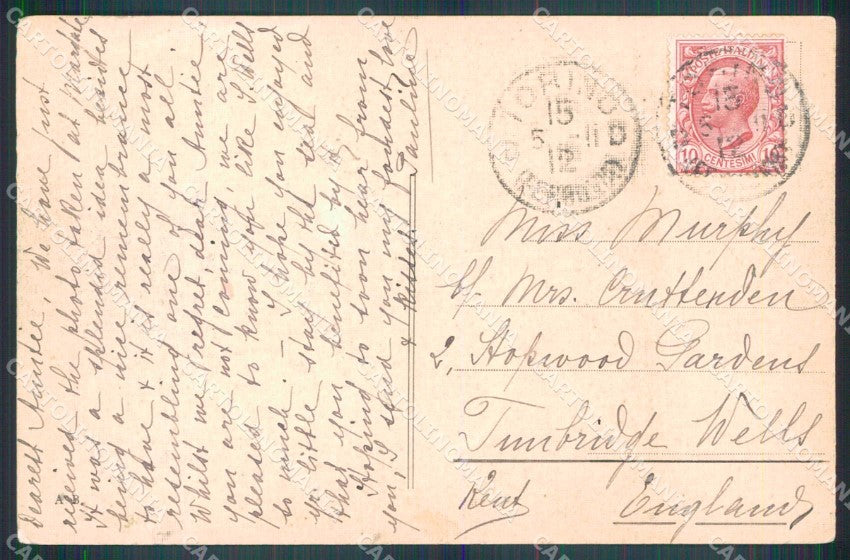 Dearest Auntie, We have just
received the photo taken at
it was a splendid idea besides
being a nice remembrance
to have & it is really a most
resembling one of you all.
Whilst we regret, dear Auntie
you are not coming, we are
pleased to know you like T. Wells
so much. — I hope you enjoyed
yr little stay by the sea and
that you benefited by it
Hoping to soon hear from
you, I send you my fondest love
& kisses, Pauline
TORINO
15
5 - 11 D
12
(FERROVIA)
POSTE ITALIANE
10 CENTESIMI 10
15
12
Miss Murphy
c/o Mrs. Cruttenden
2, Hopwood Gardens
Tunbridge Wells
Kent
England
CARTOLINOMANIA